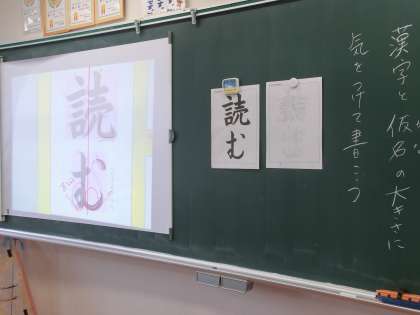 漢字と仮名の大きさに
気をつけて書こう
読む
読む
読む